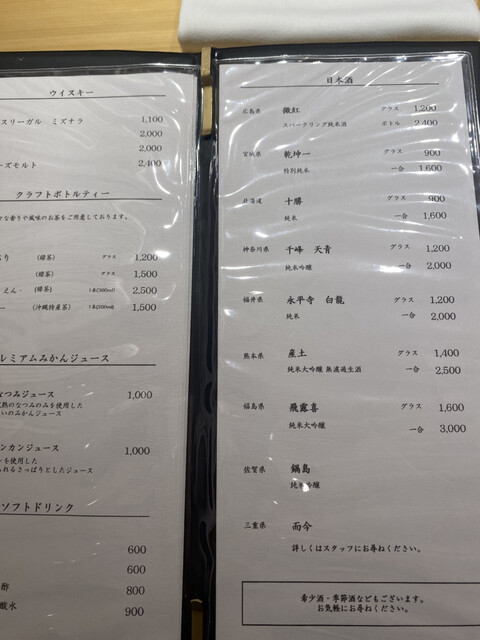 ウイスキー
スリーガル ミズナラ 1,100
2,000
2,000
ーズモルト 2,400
クラフトボトルティー
な香りや風味のお茶をご用意しております。
(甜茶) グラス 1,200
(甜茶) グラス 1,500
えん (甜茶) 2,500
ー (沖縄特産茶) 1,500
レミアムみかんジュース
なつみジュース 1,000
熟のなつみのみを使用した
いのみかんジュース
ンカンジュース 1,000
ンを使用した
れるさっぱりとしたジュース
ソフトドリンク
600
600
酢 800
酸水 900
日本酒
広島県 微紅 グラス 1,200
スパークリング純米酒 ボトル 2,400
宮城県 乾坤一 グラス 900
特別純米 一合 1,600
北海道 十勝 グラス 900
純米 一合 1,600
神奈川県 千峰 天青 グラス 1,200
純米吟醸 一合 2,000
福井県 永平寺 白龍 グラス 1,200
純米 一合 2,000
熊本県 産土 グラス 1,400
純米大吟醸 無濾過生酒 一合 2,500
福島県 飛露喜 グラス 1,600
純米大吟醸 一合 3,000
佐賀県 鍋島
純米吟醸
三重県 而今
詳しくはスタッフにお尋ねください。
希少酒・季節酒などもございます。
お気軽にお尋ねください。